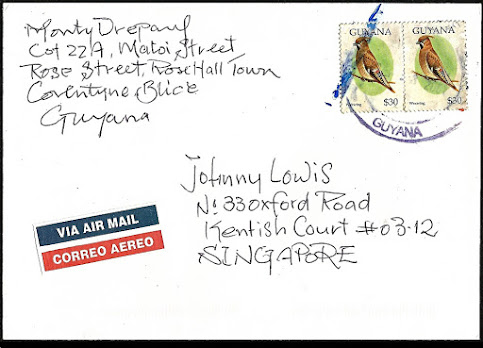 Cot 22A, Matoi Street
Rose Street, Rose Hall Town
Guyana
GUYANA
GUYANA
Waxwing
$30
$30
GUYANA
Johnny Lowis
No 33 Oxford Road
Kentish Court #03-12
SINGAPORE
VIA AIR MAIL
CORREO AEREO